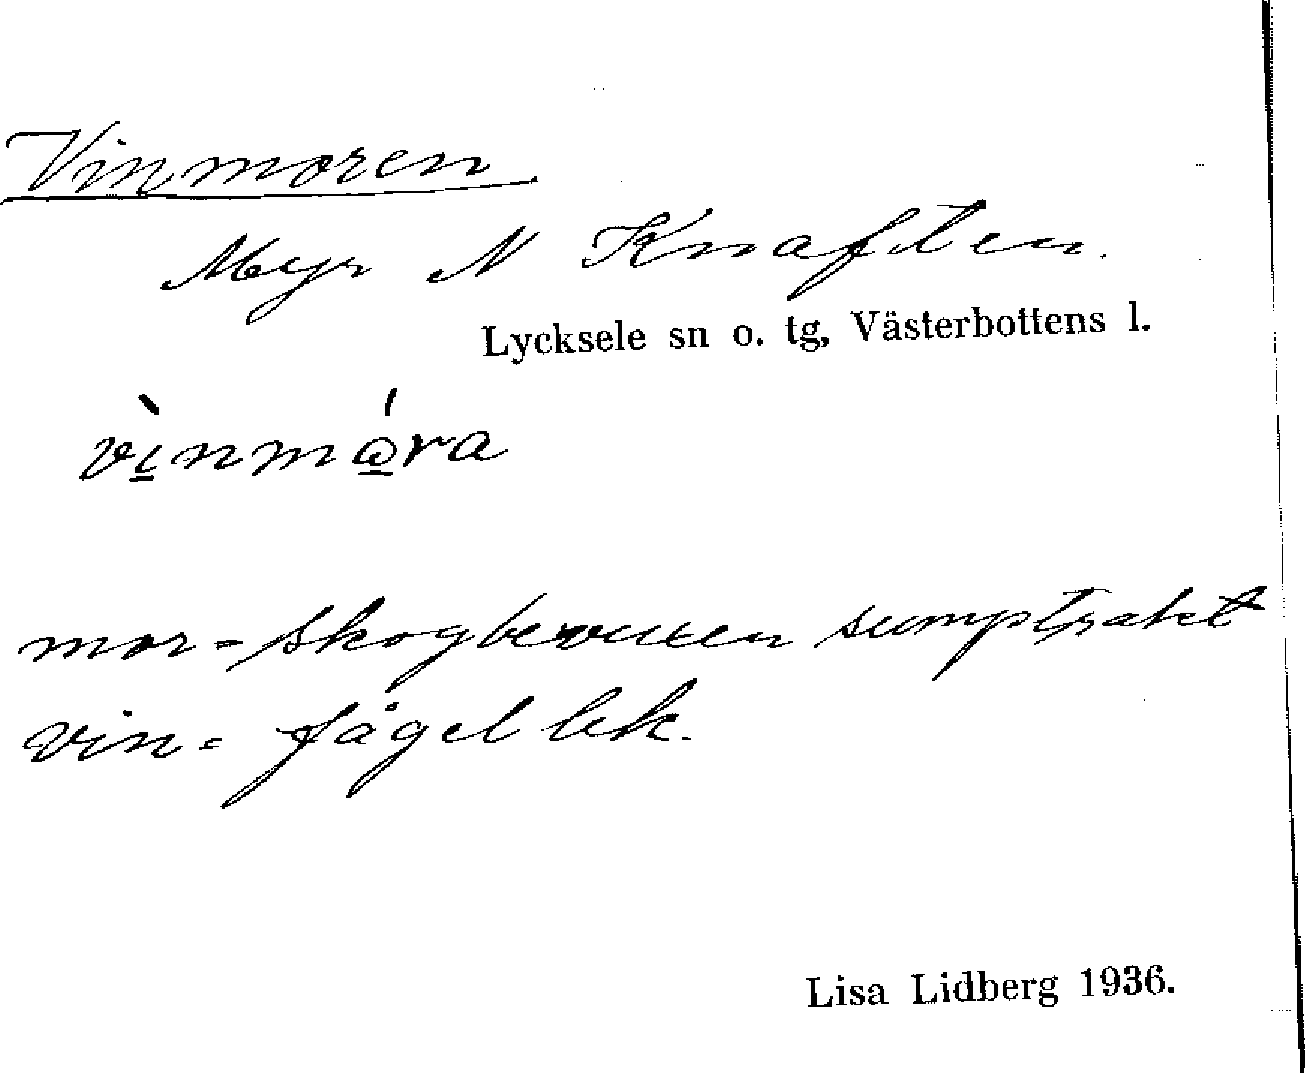 Vinmoren
Myr N Knaften.
Lycksele sn o. tg, Västerbottens l.
vì̱nmɷ̱́ra
mor = skogbevuxen sumptrakt
vin = fågellek.
Lisa Lidberg 1936.